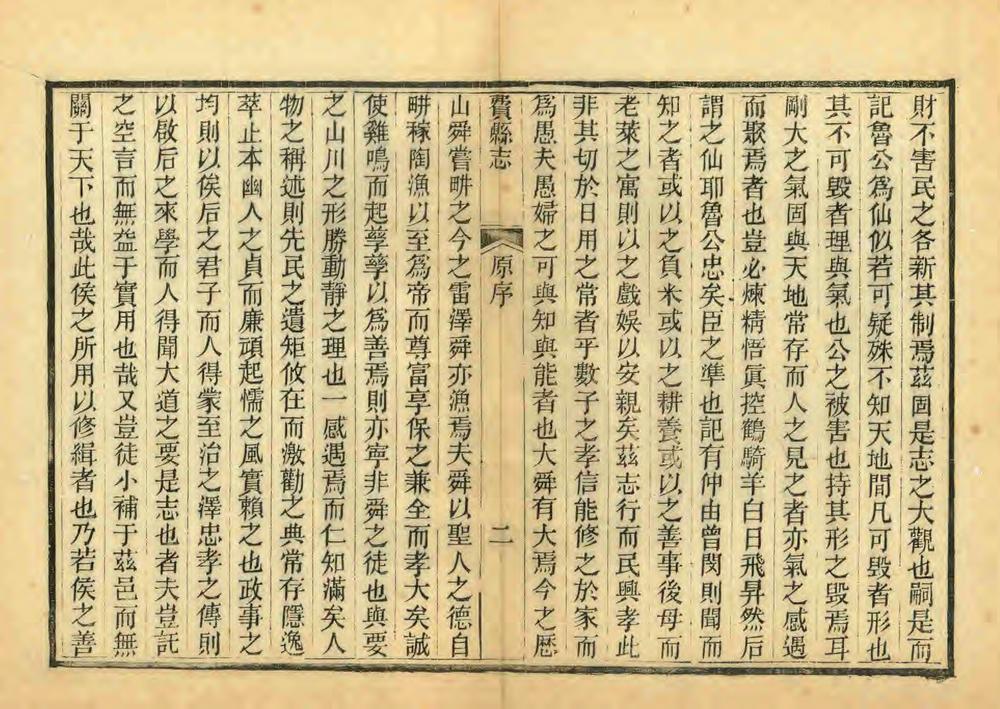 財不害民之各新其制焉茲固是志之大觀也嗣是而
記魯公爲仙似若可疑殊不知天地間凡可毀者形也
其不可毀者理與氣也公之被害也持其形之毀焉耳
剛大之氣固與天地常存而人之見之者亦氣之感遇
而聚焉者也豈必煉精悟眞控鶴騎羊白日飛昇然后
謂之仙耶魯公忠矣臣之準也記有仲由曾閔則聞而
知之者或以之負米或以之耕養或以之善事後母而
老萊之寓則以之戲娛以安親矣茲志行而民興孝此
非其切於日用之常者乎數子之孝信能修之於家而
爲愚夫愚婦之可與知與能者也大舜有大焉今之歷
費縣志
原序
二
山舜嘗畊之今之雷澤舜亦漁焉夫舜以聖人之德自
畊稼陶漁以至爲帝而尊富享保之兼全而孝大矣誠
使雞鳴而起孳孳以爲善焉則亦寧非舜之徒也與要
之山川之形勝動靜之理也一感遇焉而仁知滿矣人
物之稱述則先民之遺矩攸在而激勸之典常存隱逸
萃止本幽人之貞而廉頑起懦之風實賴之也政事之
均則以俟后之君子而人得蒙至治之澤忠孝之傳則
以啟后之來學而人得聞大道之要是志也者夫豈託
之空言而無益于實用也哉又豈徒小補于茲邑而無
關于天下也哉此侯之所用以修緝者也乃若侯之善